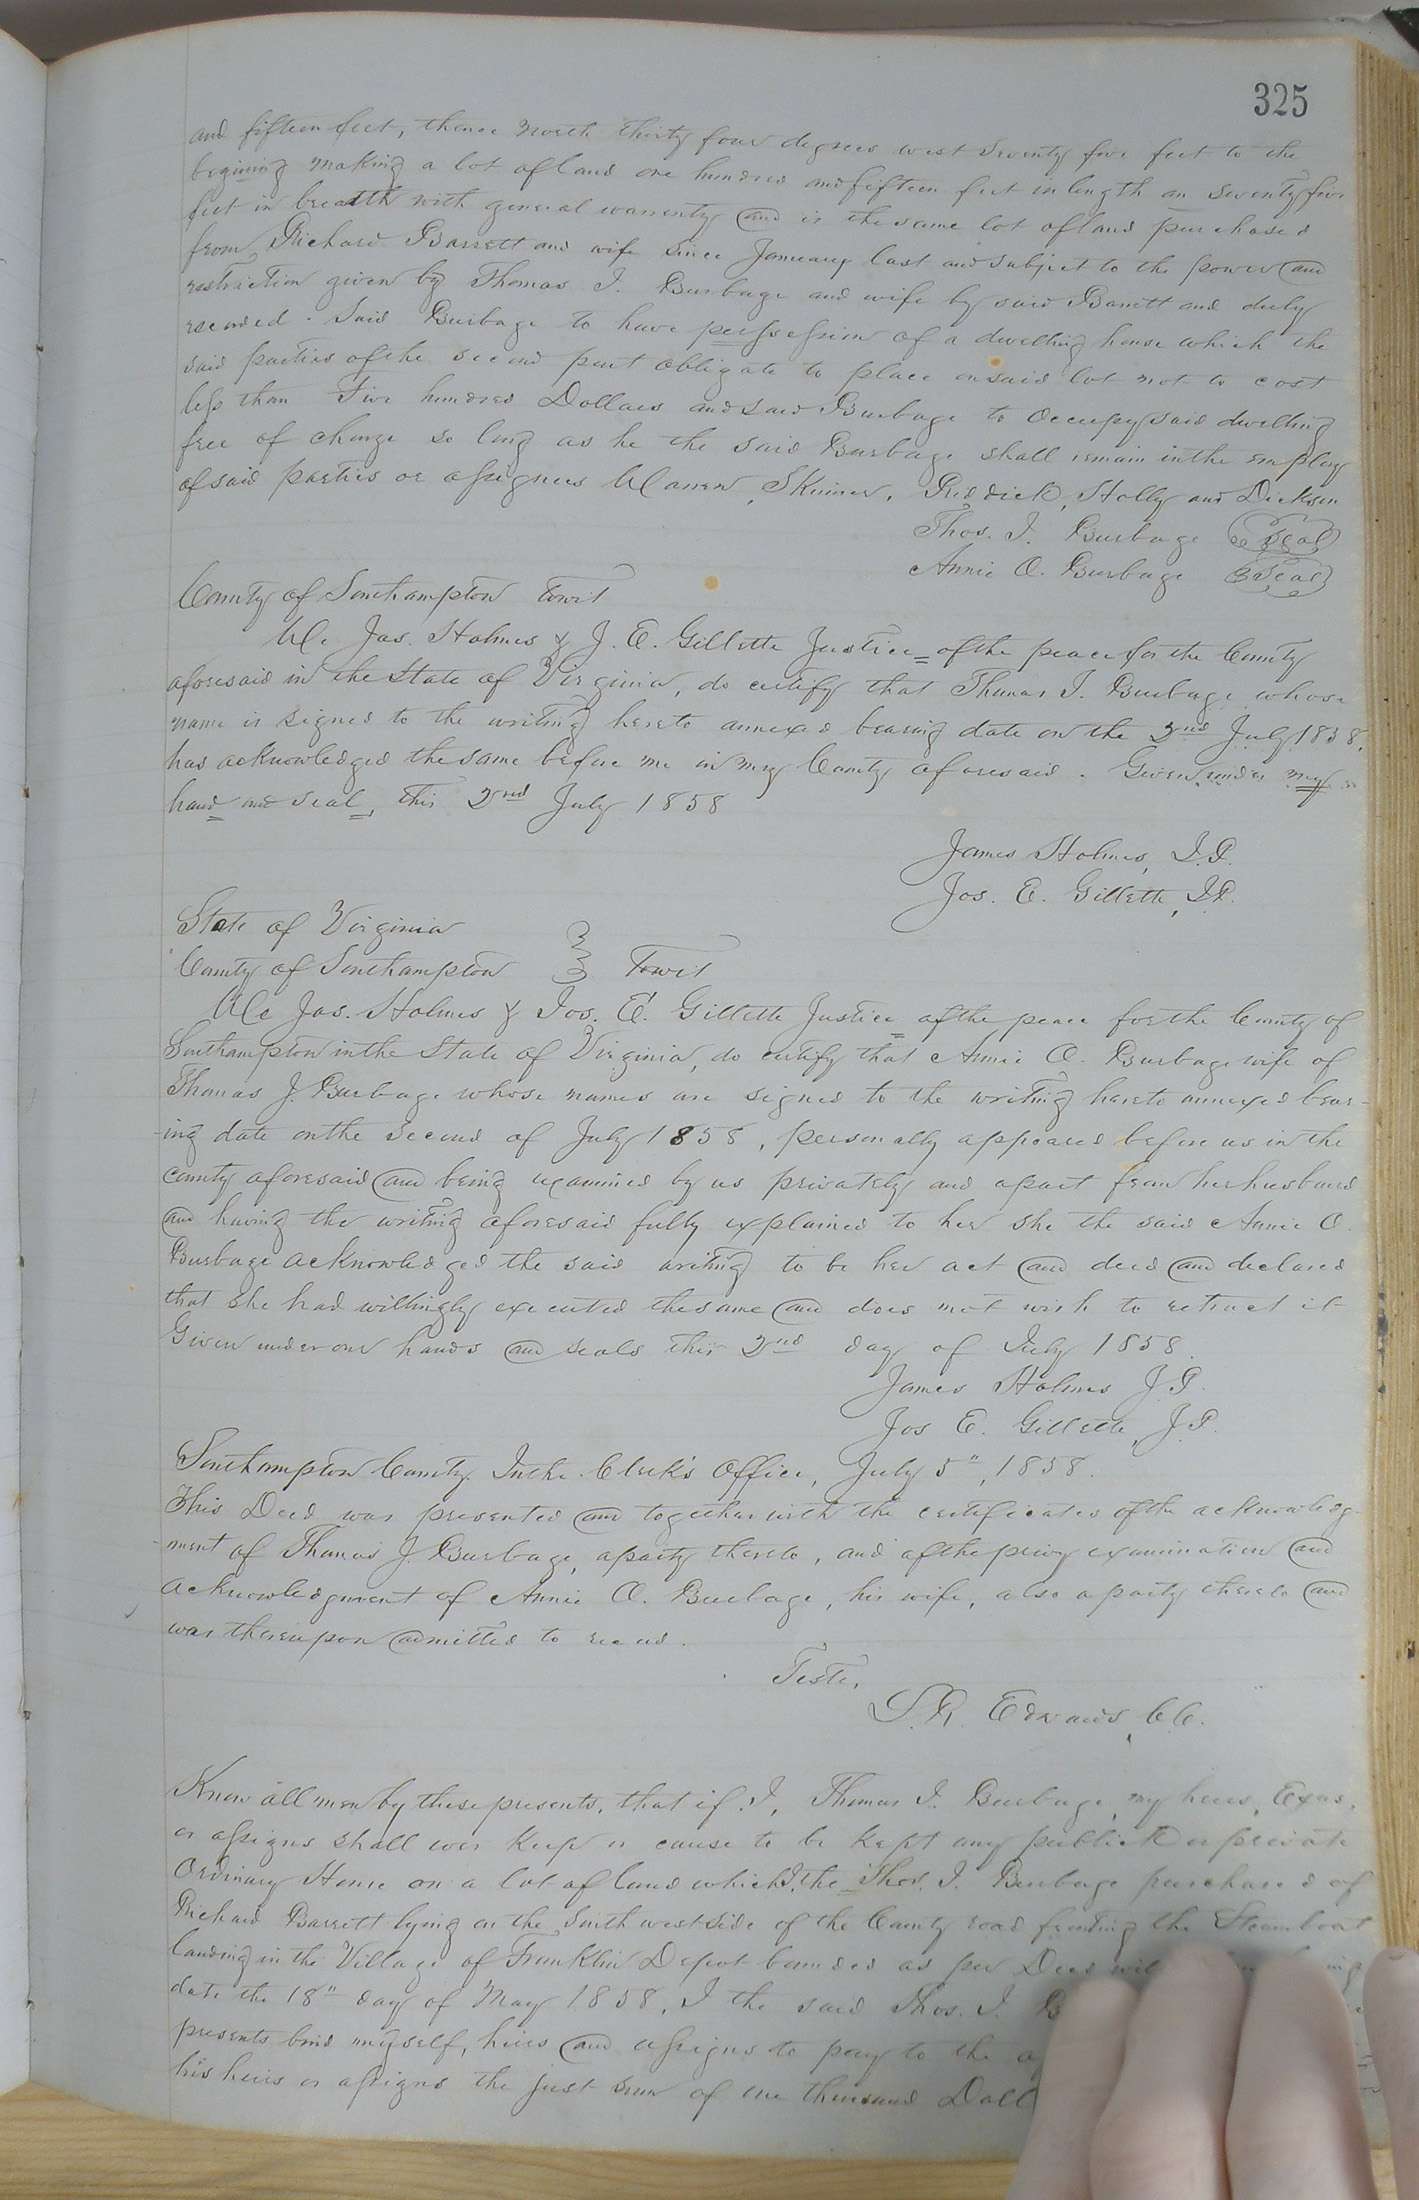 325
and fifteen feet, thence North thirty four degrees west Seventy five feet to the
begining making a lot of land one hundred and fifteen feet in length an Seventy five
feet in breadth with general warrenty and is the same lot of land purchased
from Richard Barrett and wife since January last and subject to the power and
restriction given by Thomas J. Burbage and wife by said Barrett and duly
recorded. Said Burbage to have possession of a dwelling house which the
said parties of the second part obligate to place on said lot not to cost
less than Five hundred Dollars and said Burbage to Occupy said dwelling
free of charge so long as he the said Burbage shall remain in the employ
of said parties or assignees Warren, Skinner, Riddick, Holly and Dickson
Thos. J. Burbage Seal
Annie O. Burbage Seal
County of Southampton Towit
We Jas. Holmes & J. E. Gillette Justice of the peace for the County
aforesaid in the State of Virginia, do certify that Thomas J. Burbage whose
name is signed to the writing hereto annexed bearing date on the 2nd July 1858,
has acknowledged the same before me in my County aforesaid. Given under my
hand and seal, this 2nd July 1858
James Holmes, J.P.
Jos. E. Gillette, J.P.
State of Virginia
County of Southampton } Towit
We Jas. Holmes & Jos. E. Gillette Justice of the peace for the County of
Southampton in the State of Virginia, do certify that Annie O. Burbage wife of
Thomas J. Burbage whose names are signed to the writing hereto annexed bear-
-ing date on the second of July 1858, personally appeared before us in the
county aforesaid and being examined by us privately and apart from her husband
and having the writing aforesaid fully explained to her she the said Annie O.
Burbage acknowledged the said writing to be her act and deed and declared
that she had willingly executed the same and does not wish to retract it
Given under our hands and seals this 2nd day of July 1858.
James Holmes J.P.
Jos E. Gillette, J.P.
Southampton County In the Clerk's Office, July 5", 1858.
This Deed was presented and together with the certificates of the acknowledg-
ment of Thomas J. Burbage, a party thereto, and of the privy examination and
acknowledgment of Annie O. Burbage, his wife, also a party thereto and
was thereupon admitted to record.
Teste,
L. R. Edwards, C.C.
Know all men by these presents, that if I, Thomas J. Burbage, my heirs, Exors,
or assigns shall ever keep or cause to be kept any publick or private
Ordinary House on a lot of land which I, the Thos. J. Burbage purchased of
Richard Barrett lying on the South west side of the County road fronting the Steamboat
landing in the Village of Franklin Depot bounded as per Deed
date the 18" day of May 1858, I the said Thos. J. B
presents bind myself, heirs and assigns to pay to the
his heirs or assigns the just sum of one thousand Doll